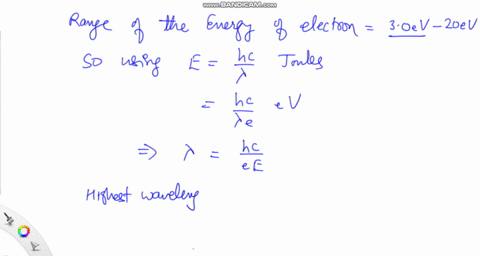 WWW.BANDICAM.COM
Range of the Energy of electron = 3.0eV - 20eV
SO using E = hc/λ Joules
= hc/λe eV
⇒ λ = hc/eE
Highest waveleng